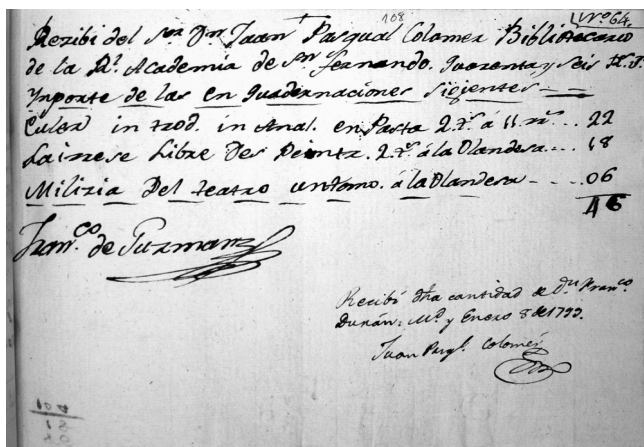 108
Nº 64.
Rezibi del Sor Dn Juan Pasqual Colomer Bibliotecario
de la Rl. Academia de Sn Fernando. Quarenta y seis
Ynporte de las en quadernaciones sigientes
Euler in trod. in Anal. en Pasta 2. ts. á 11 rrs... 22
Lairese Libre Des Peintr. 2. ts. á la Olandesa... 18
Milizia Del teatro un tomo. á la Olandesa - - - .. 06
46
Franco. de Guzman
Recibí dha cantidad de Dn. Franco.
Durán: Md. y Enero 8 de 1799.
Juan Pasql. Colomer
104